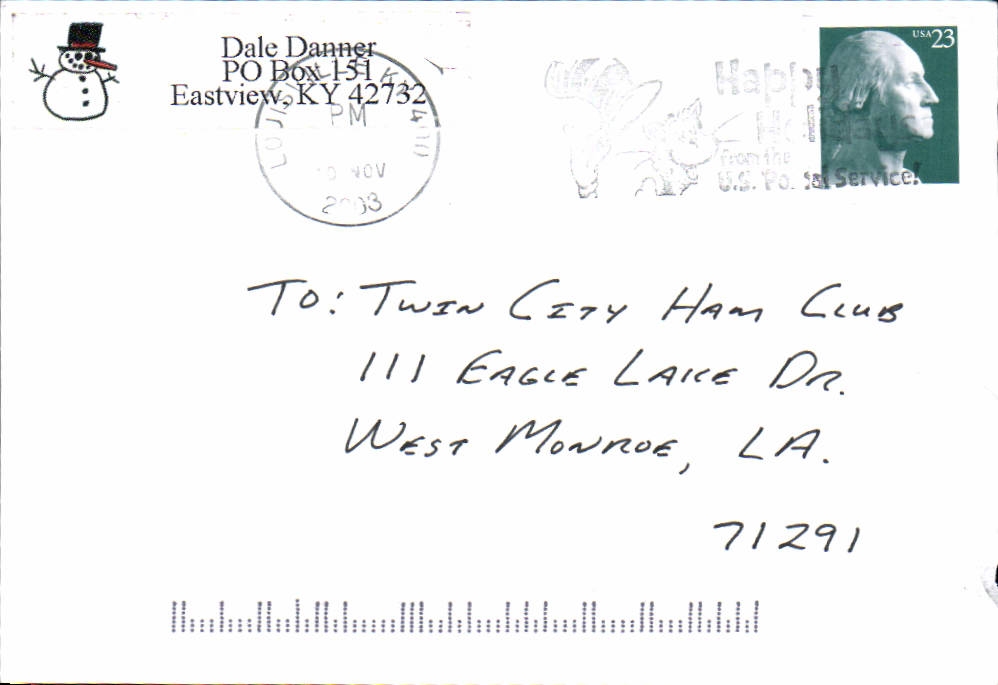 Dale Danner
PO Box 151
Eastview, KY 42732
PM
NOV
2003
USA 23
Happy
from the
U.S. Postal Service!
TO: TWIN CITY HAM CLUB
111 EAGLE LAKE DR.
WEST MONROE, LA.
71291